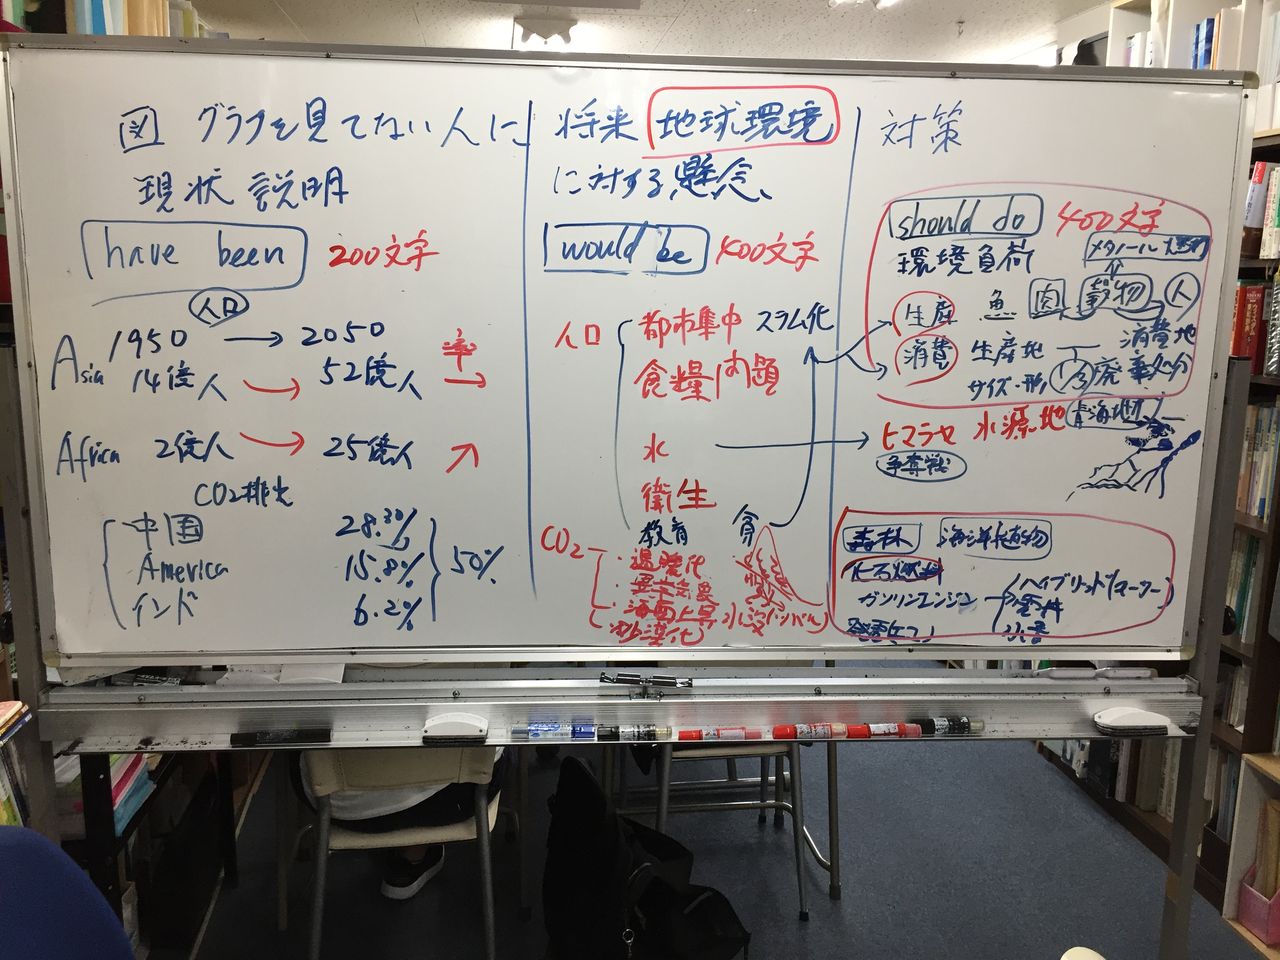 図 グラフを見てない人に
現状 説明
have been 200文字
人口
1950 → 2050
Asia 14億人 → 52億人 率 →
Africa 2億人 → 25億人 ↗
CO2排出
中国 28.3%
America 15.8%
インド 6.2%
50%
将来 地球環境
に対する懸念、
would be 400文字
人口 都市集中 スラム化
食糧問題
水
衛生
教育 貧
CO2 ・温暖化
・異常気象
・海面上昇 水没(ツバル)
砂漠化
対策
should do 400文字
環境負荷 メタノール
生産 魚 肉 穀物 人
消費 生産地 消費地
サイズ・形 1/3 廃棄処分
ヒマラヤ 水源地
争奪戦
森林 海洋植物
化石燃料
ガソリンエンジン ハイブリッド